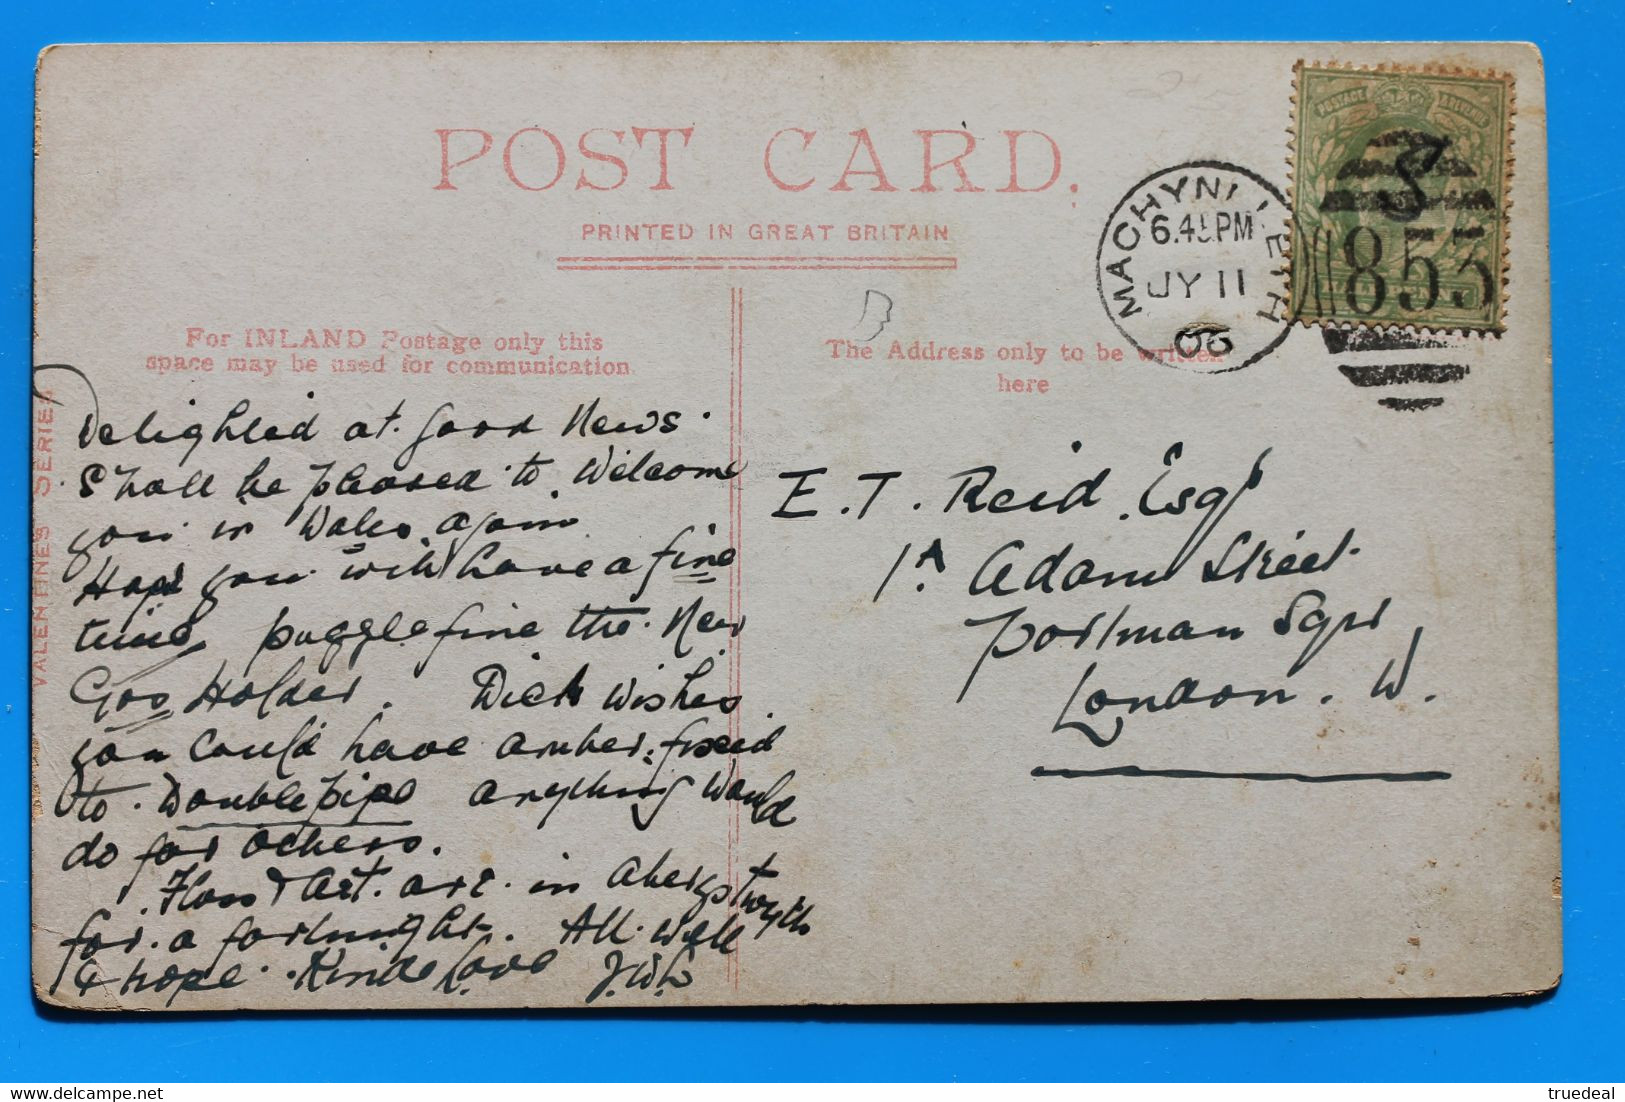 POST CARD.
PRINTED IN GREAT BRITAIN
For INLAND Postage only this
space may be used for communication.
The Address only to be written
here
VALENTINES SERIES
MACHYNLLETH
6.45PM
JY 11
06
POSTAGE REVENUE
853
Delighted at good News.
Shall be pleased to Welcome
you in Wales again
Hope you will have a fine
time, fine the New
Gas Holder. Dick wishes
you could have amber fixed
to Double pipe anything would
do for others.
Floss & Art. are in Aberystwyth
for a fortnight. All well
& hope. Kind Love J.W.L
E. T. Reid Esqr
1A Adam Street
Portman Sqre
London. W.
truedeal